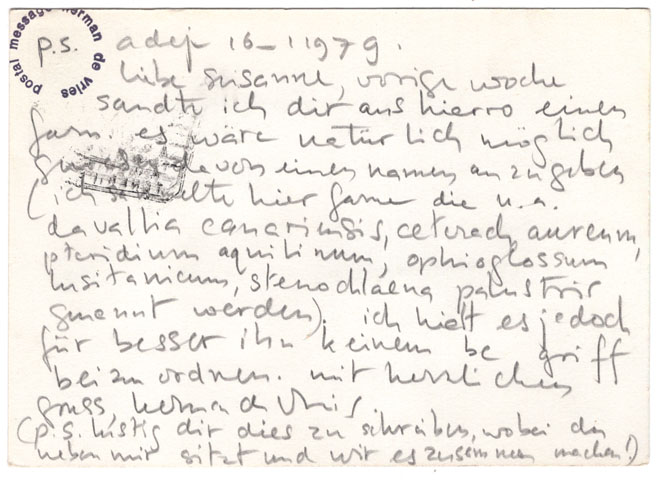 postal message herman de vries
p.s. adeje 16-1 1979.
liebe susanne, vorige woche
sandte ich dir aus hierro einen
farn. es wäre natürlich möglich
gewesen davon einen namen anzugeben
(ich sammelte hier farne die u.a.
davallia canariensis, ceterach aureum,
pteridium aquilinum, ophioglossum
lusitanicum, stenochlaena palustris
genannt werden). ich hielt es jedoch
für besser ihn keinem be griff
beizuordnen. mit herzlichem
gruss, herman de vries
(p.s. lustig dir dies zu schreiben, wobei du
neben mir sitzt und wir es zusammen machen!)